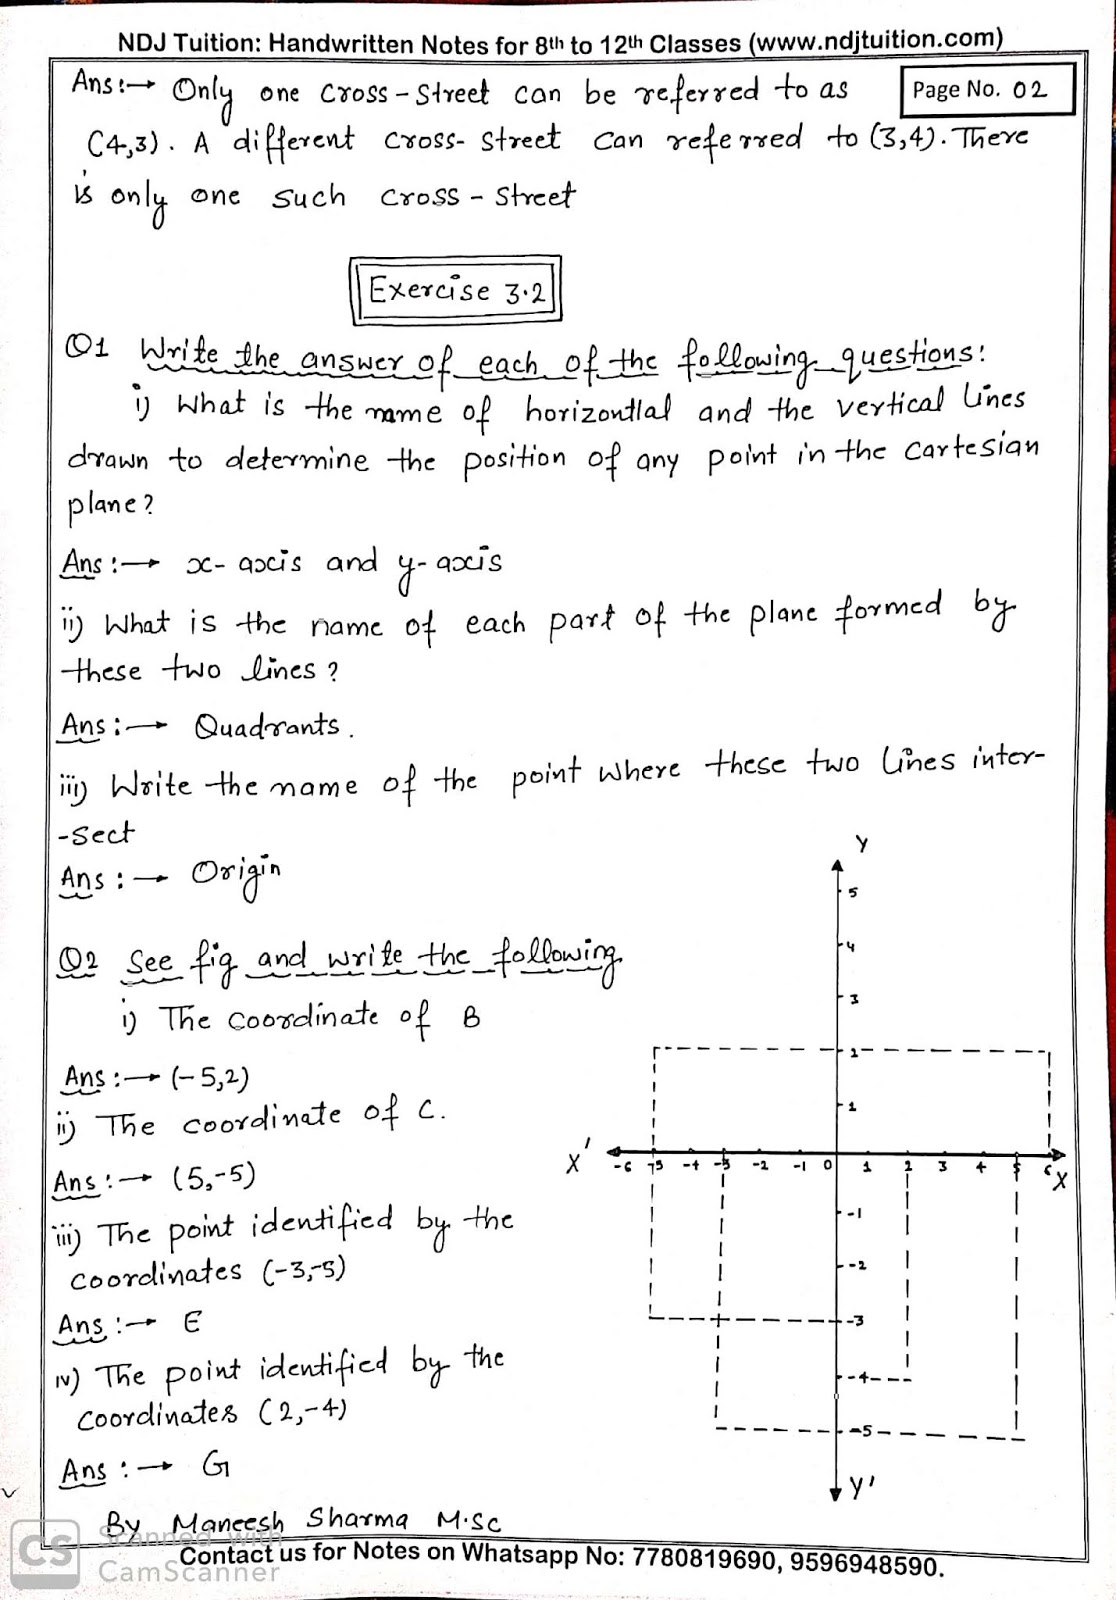 NDJ Tuition: Handwritten Notes for 8th to 12th Classes (www.ndjtuition.com)
Page No. 02
Ans:→ Only one cross-street can be referred to as
(4,3). A different cross-street can referred to (3,4). There
is only one such cross-street
Exercise 3.2
Q1 Write the answer of each of the following questions:
i) What is the name of horizontlal and the vertical lines
drawn to determine the position of any point in the cartesian
plane?
Ans:→ x-axis and y-axis
ii) What is the name of each part of the plane formed by
these two lines?
Ans:→ Quadrants.
iii) Write the name of the point where these two lines inter-
-sect
Ans:→ Origin
Q2 See fig and write the following
i) The coordinate of B
Ans:→ (-5,2)
ii) The coordinate of C.
Ans:→ (5,-5)
iii) The point identified by the
coordinates (-3,-5)
Ans:→ E
iv) The point identified by the
coordinates (2,-4)
Ans:→ G
Y
5
4
3
2
1
X' -6 -5 -4 -3 -2 -1 0 1 2 3 4 5 6 X
-1
-2
-3
-4
-5
Y'
By Maneesh Sharma M.Sc
CS Scanned with
CamScanner
Contact us for Notes on Whatsapp No: 7780819690, 9596948590.